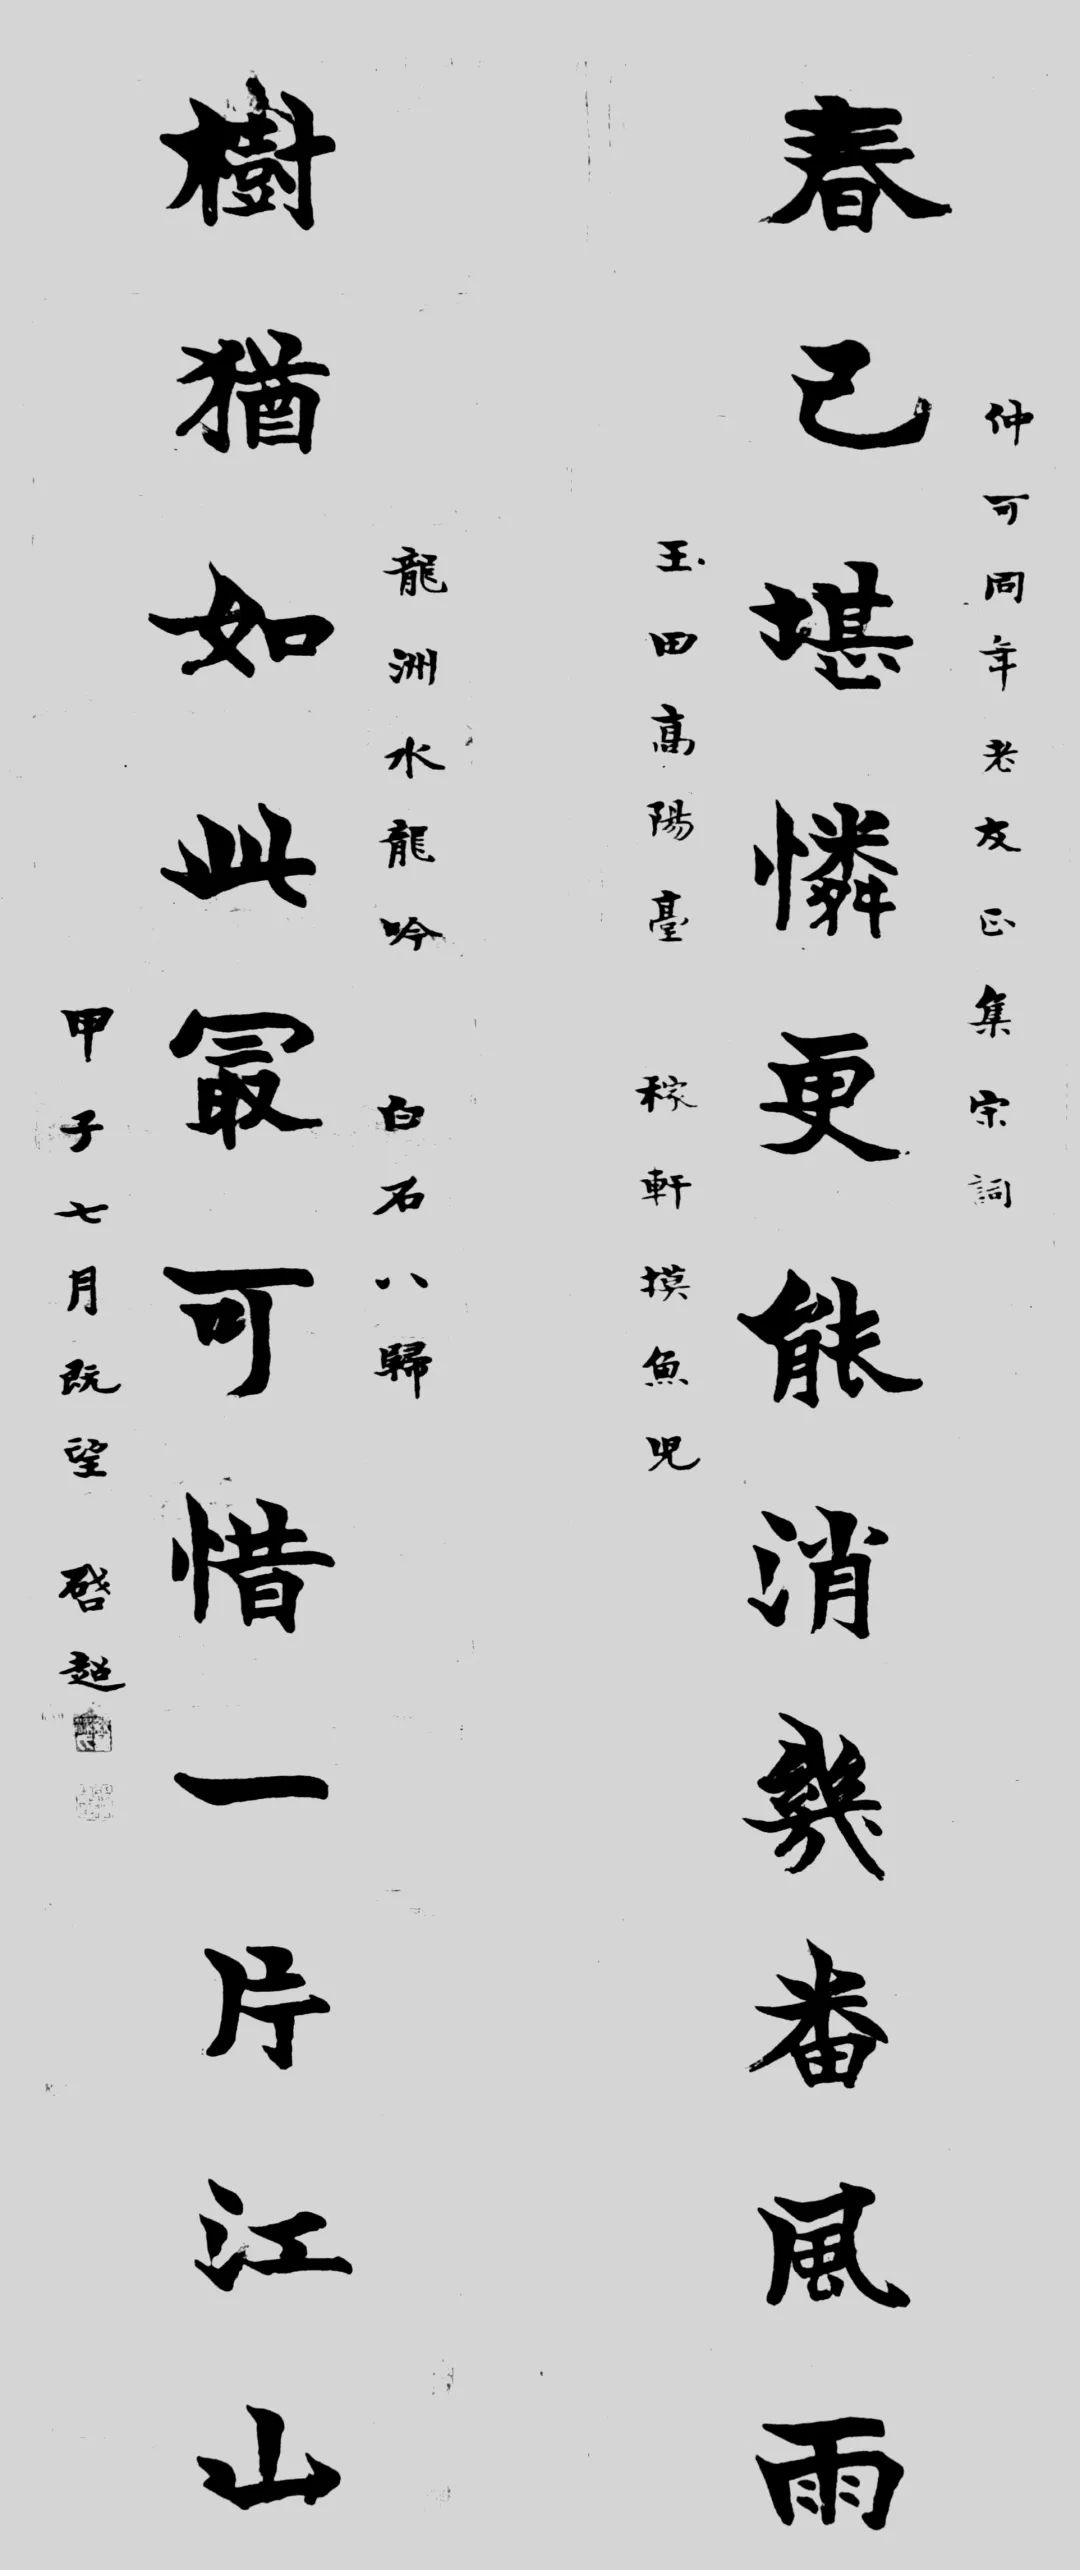 仲可同年老友正集宋詞
春已堪憐更能消幾番風雨
玉田高陽臺 稼軒摸魚兒
龍洲水龍吟 白石八歸
樹猶如此最可惜一片江山
甲子七月既望 啓超